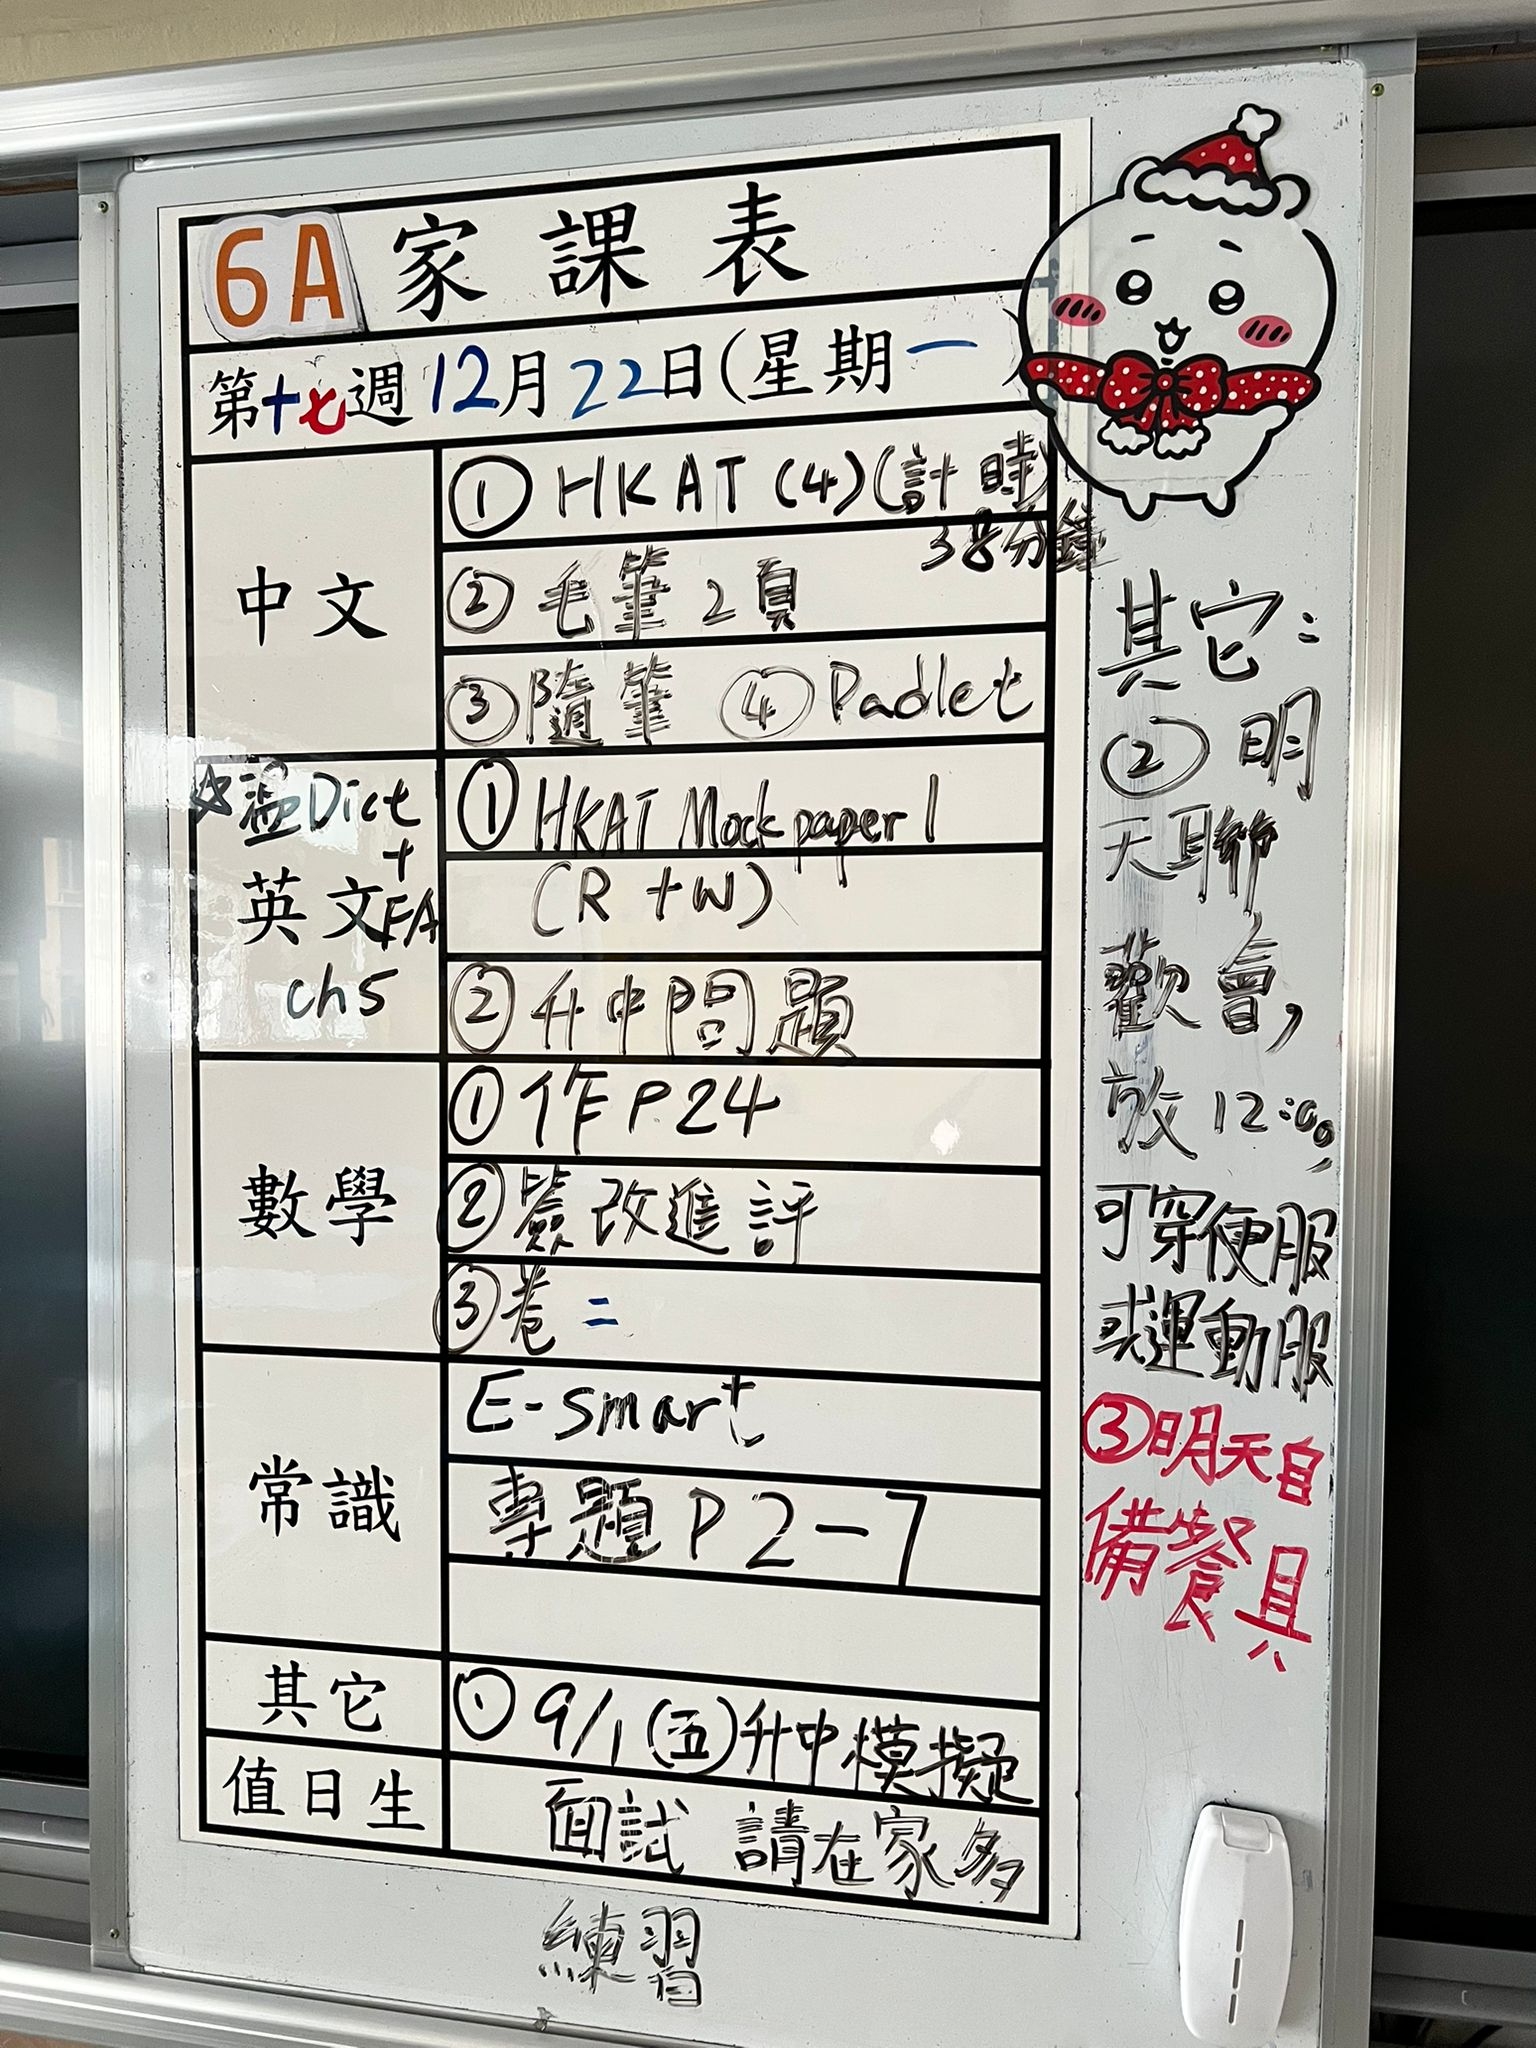 6A 家課表
第十七週12月22日(星期一)
中文
① HKAT (4)(計時)
38分鐘
② 毛筆2頁
③ 隨筆 ④ Padlet
☆溫Dict
+
英文 FA
ch5
① HKAT Mock paper 1
(R+W)
② 升中問題
數學
① 作P.24
② 簽改進評
③ 卷二
常識
E-smart
專題P2-7
其它
① 9/1(五)升中模擬
值日生
面試 請在家多
練習
其它:
② 明
天聯
歡會,
放12:00,
可穿便服
或運動服
③明天自
備餐具